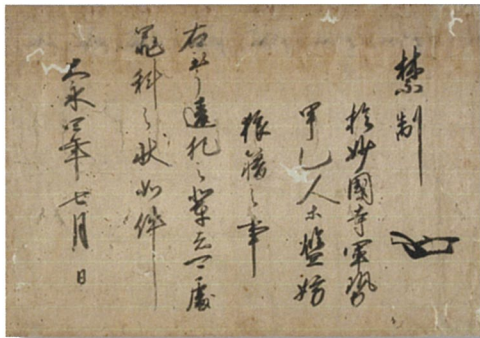 禁制
於妙國寺軍勢
甲乙人等濫妨
狼藉之事
右違犯之輩者可處
罪科之状如件
大永四年七月日